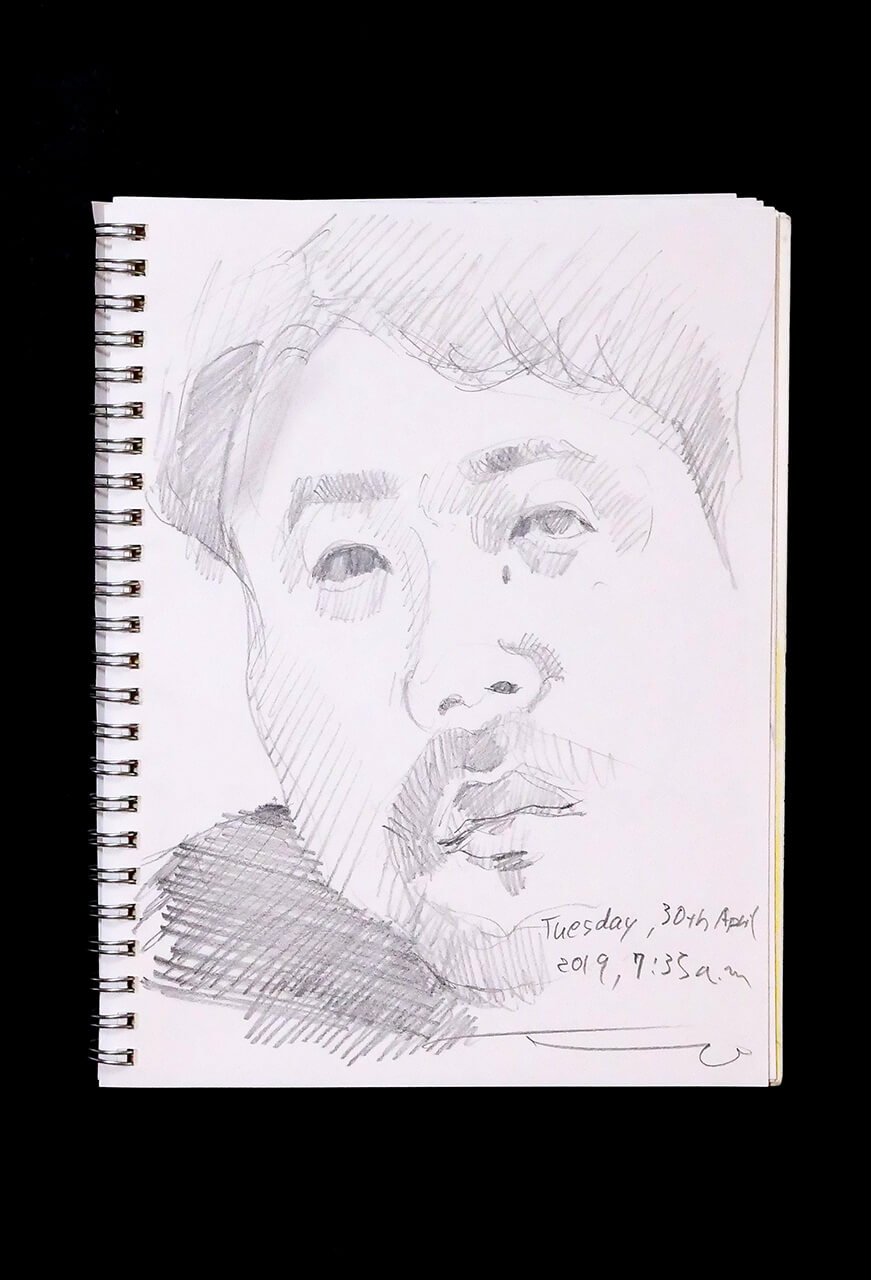 Tuesday, 30th April
2019, 7:35 a.m